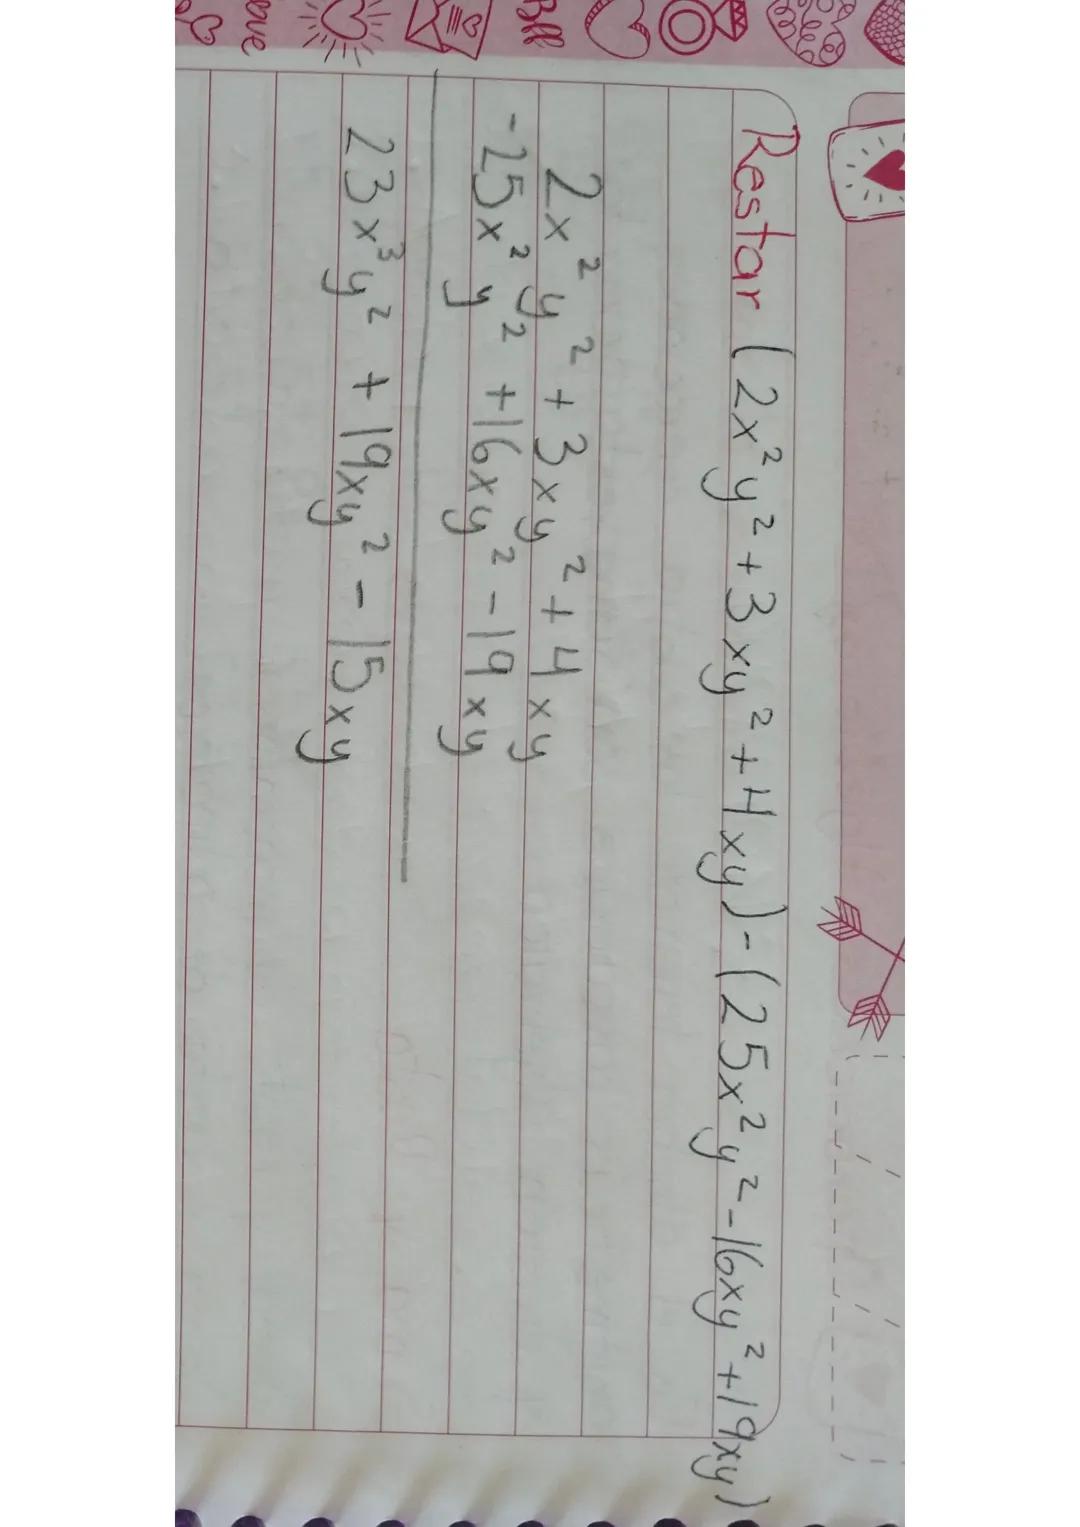 Restar (2x²y²+3xy²+4xy)-(25x²y²-16xy²+19xy)
2x²y²+3xy²+4xy
-25x²y²+16xy²-19xy
23x³y²+19xy²-15xy
Bff